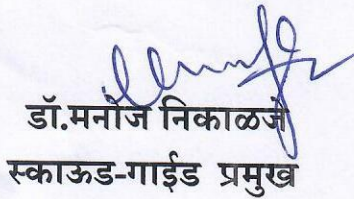 डॉ.मनोज निकाळजे
स्काऊड-गाईड प्रमुख